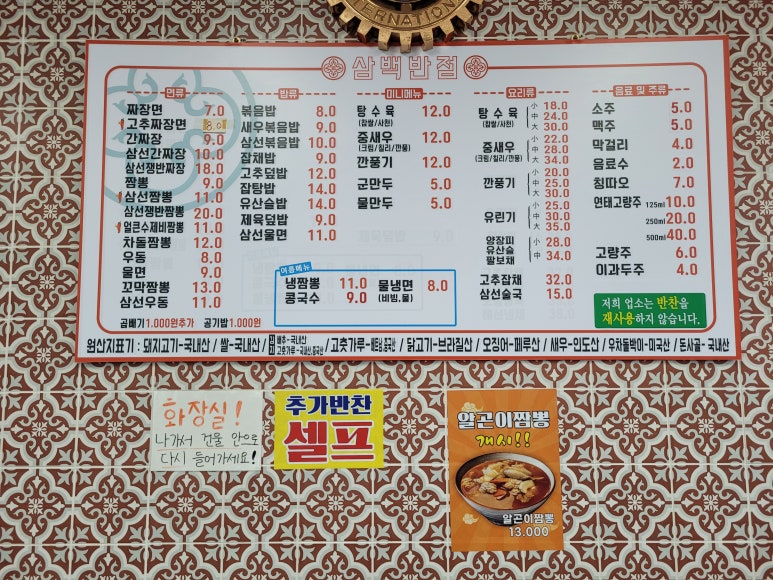 INTERNATIONAL
삼백반점
면류
짜장면 7.0
고추짜장면 8.0
간짜장 9.0
삼선간짜장 10.0
삼선쟁반짜장 18.0
짬뽕 9.0
삼선짬뽕 11.0
삼선쟁반짬뽕 20.0
얼큰수제비짬뽕 11.0
차돌짬뽕 12.0
우동 8.0
울면 9.0
꼬막짬뽕 13.0
삼선우동 11.0
곱빼기1.000원추가 공기밥1.000원
밥류
볶음밥 8.0
새우볶음밥 9.0
삼선볶음밥 10.0
잡채밥 9.0
고추덮밥 12.0
잡탕밥 14.0
유산슬밥 14.0
제육덮밥 9.0
삼선울면 11.0
미니메뉴
탕수육 12.0
(찹쌀/사천)
중새우 12.0
(크림/칠리/깐풍)
깐풍기 12.0
군만두 5.0
물만두 5.0
여름메뉴
냉짬뽕 11.0 물냉면 8.0
콩국수 9.0 (비빔,물)
요리류
탕수육 소 18.0
(찹쌀/사천) 중 24.0
대 30.0
중새우 소 22.0
(크림/칠리/깐풍) 중 28.0
대 34.0
깐풍기 소 20.0
중 25.0
대 30.0
유린기 소 25.0
중 30.0
대 35.0
양장피
유산슬 소 28.0
팔보채 중 34.0
고추잡채 32.0
삼선술국 15.0
음료 및 주류
소주 5.0
맥주 5.0
막걸리 4.0
음료수 2.0
칭따오 7.0
연태고량주 125ml 10.0
250ml 20.0
500ml 40.0
고량주 6.0
이과두주 4.0
저희 업소는 반찬을
재사용하지 않습니다.
원산지표기 : 돼지고기-국내산 / 쌀-국내산 / 김치 배추-국내산 고춧가루-국내산,중국산 / 고춧가루-베트남,중국산 / 닭고기-브라질산 / 오징어-페루산 / 새우-인도산 / 우차돌박이-미국산 / 돈사골-국내산
화장실!
나가서 건물 안으로
다시 들어가세요!
추가반찬
셀프
알곤이짬뽕
개시!!
알곤이짬뽕
13.000